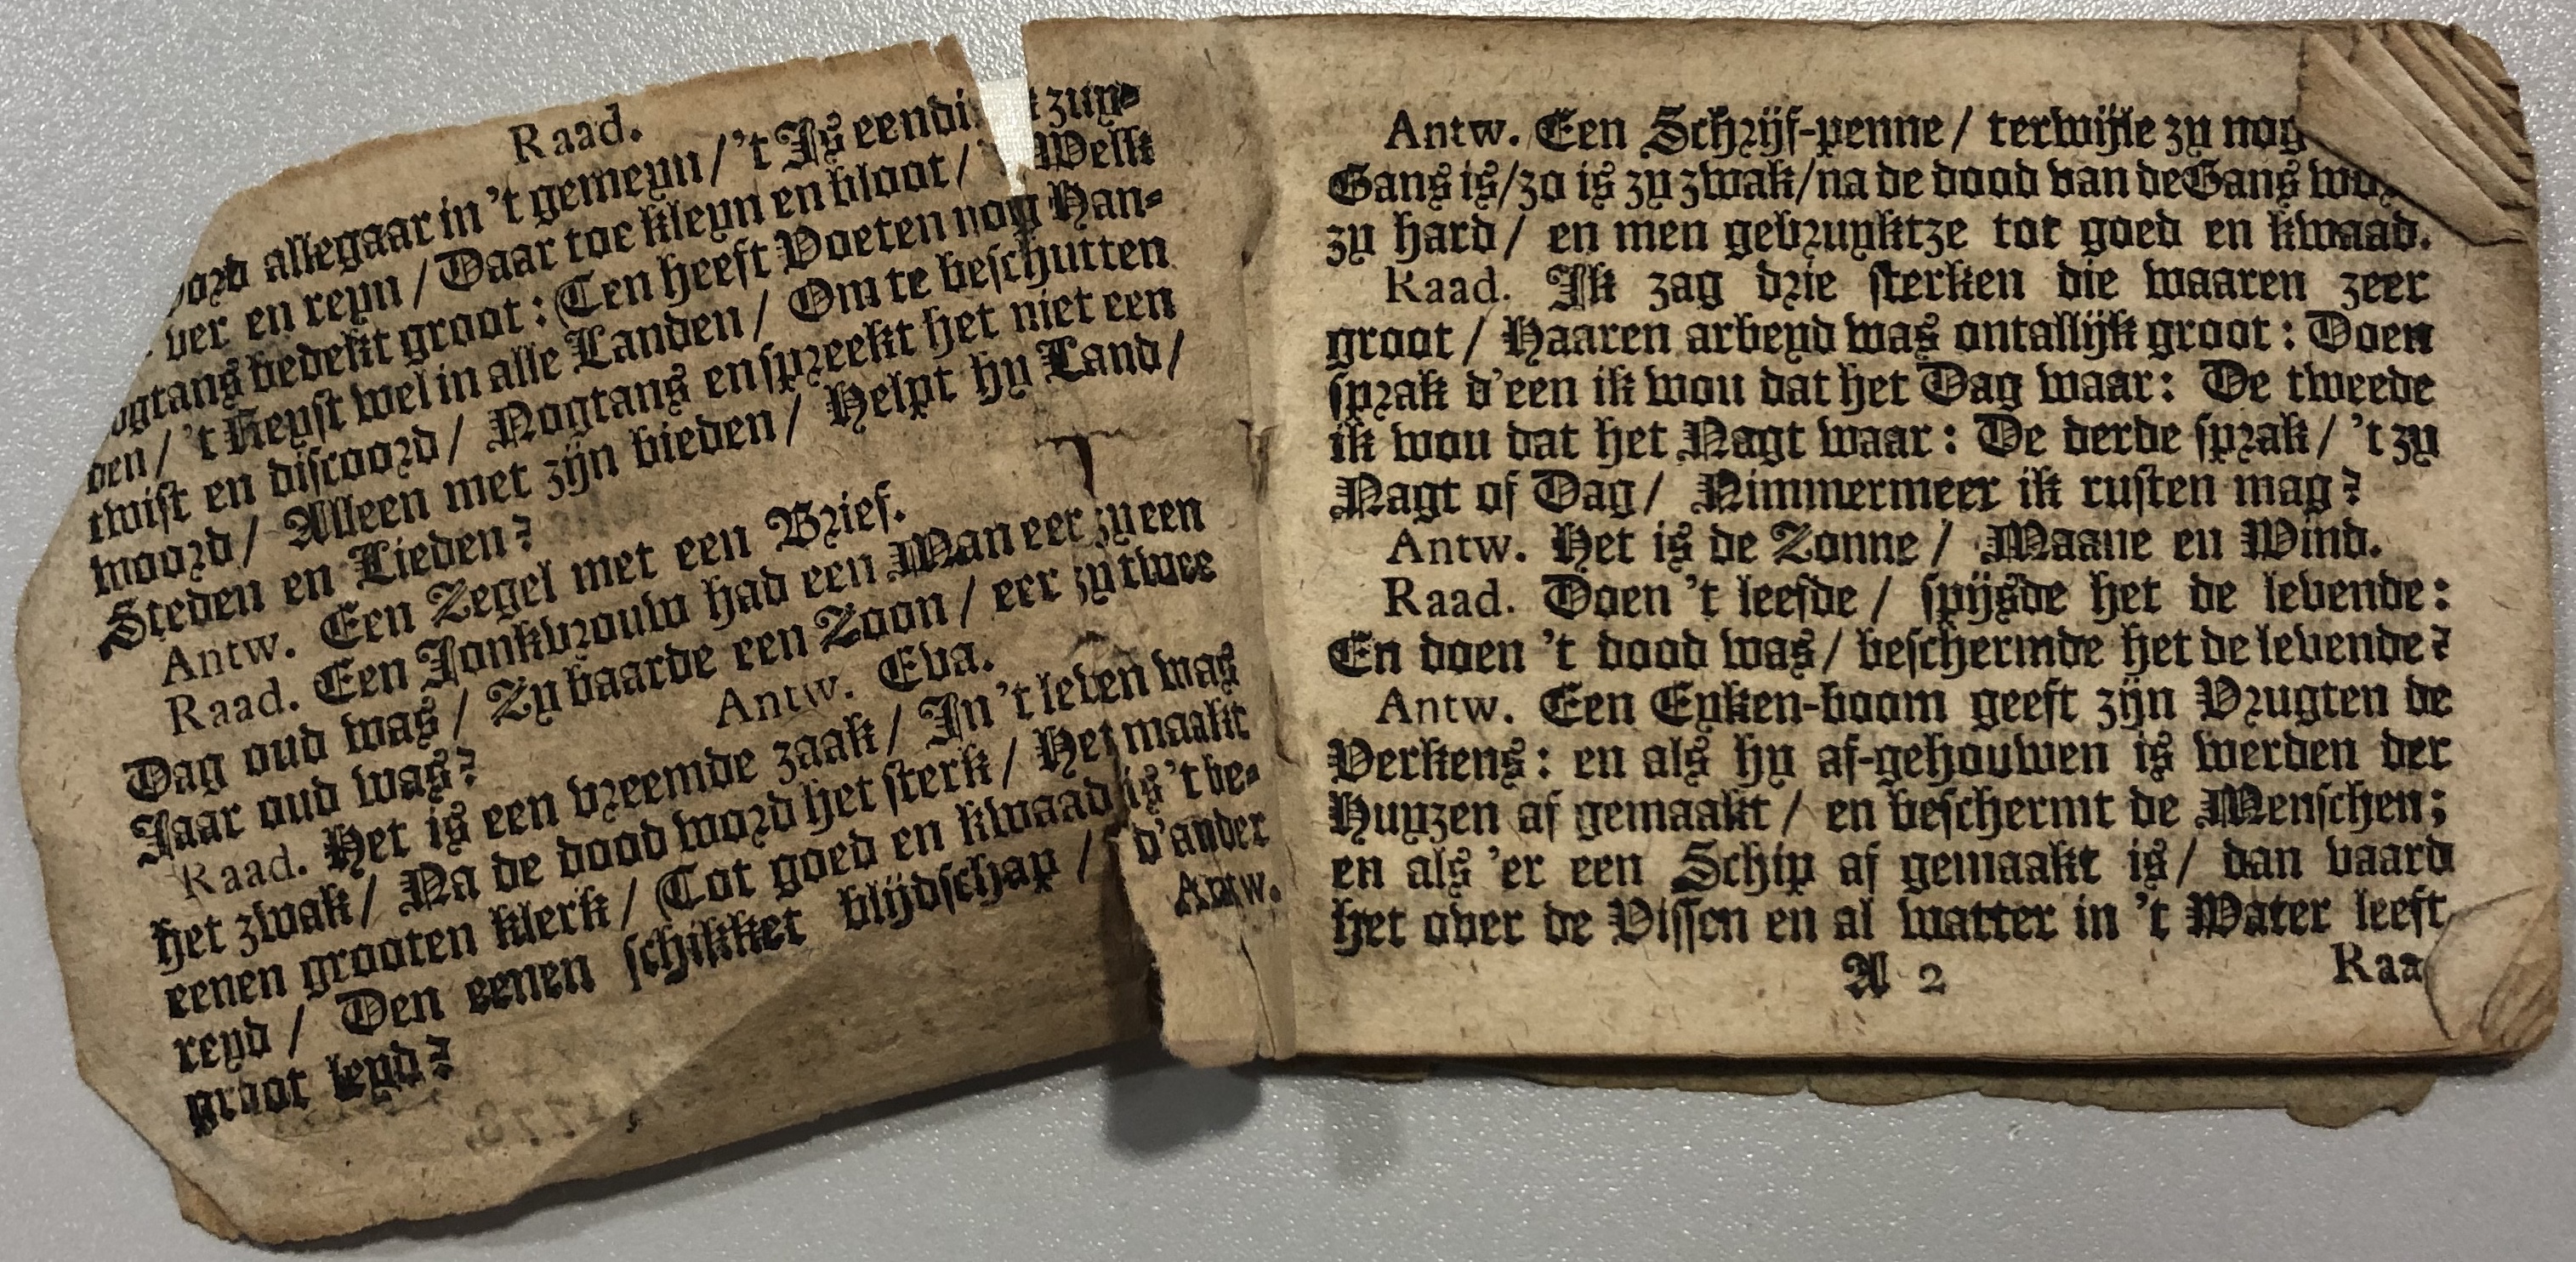 Raad.
allegaar in 't gemeyn / 't Is een
ver en reyn / Daar toe kleyn en bloot / Welk
bedekt groot: Een heeft Voeten nog Han-
den / 't Reyst wel in alle Landen / Om te beschutten
twist en discoord / Nogtans en spreekt het niet een
woord / Alleen met zijn bieden / Helpt hy Land /
Steden en Lieden?
Antw. Een Zegel met een Brief.
Raad. Een Jonkvrouw had een Man eer zy een
Dag oud was / Zy baarde een Zoon / eer zy twee
Jaar oud was? Antw. Eva.
Raad. Het is een vreemde zaak / In 't leven was
het zwak / Na de dood word het sterk / Het maakt
eenen grooten klerk / Tot goed en kwaad is 't be-
reyd / Den eenen schikket blijdschap / d'ander
groot leyd? Antw.
Antw. Een Schrijf-penne / terwijle zy nog
Gans is / zo is zy zwak / na de dood van de Gans
zy hard / en men gebruyktze tot goed en kwaad.
Raad. Ik zag drie sterken die waaren zeer
groot / Haaren arbeyd was ontallijk groot: Doen
sprak d'een ik wou dat het Dag waar: De tweede
ik wou dat het Nagt waar: De derde sprak / 't zy
Nagt of Dag / Nimmermeer ik rusten mag?
Antw. Het is de Zonne / Maane en Wind.
Raad. Doen 't leefde / spijsde het de levende:
En doen 't dood was / beschermde het de levende?
Antw. Een Eyken-boom geeft zijn Vrugten de
Verkens: en als hy af-gehouwen is werden der
Huyzen af gemaakt / en beschermt de Menschen;
en als 'er een Schip af gemaakt is / dan vaard
het over de Vissen en al watter in 't Water leeft
A 2 Raa